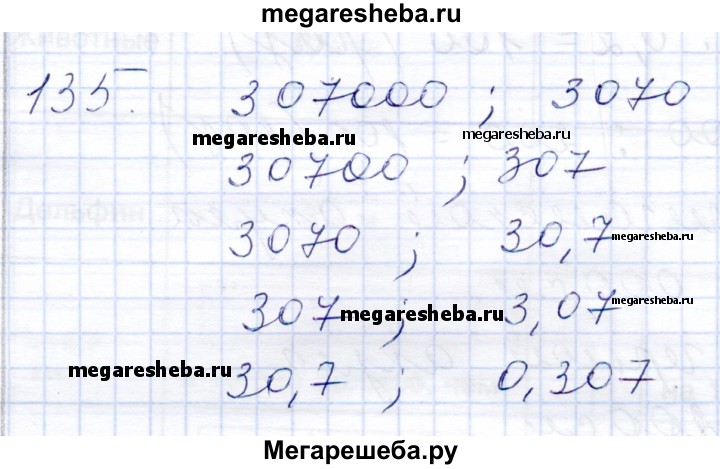 megaresheba.ru
135. 307000 ; 3070
megaresheba.ru megaresheba.ru
30700 ; 307
3070 ; 30,7 megaresheba.ru
307 ; 3,07 megaresheba.ru megaresheba.ru
megaresheba.ru
30,7 ; 0,307
Мегарешеба.ру